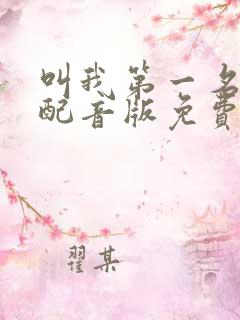 叫我第一名
配音版免费
翟某